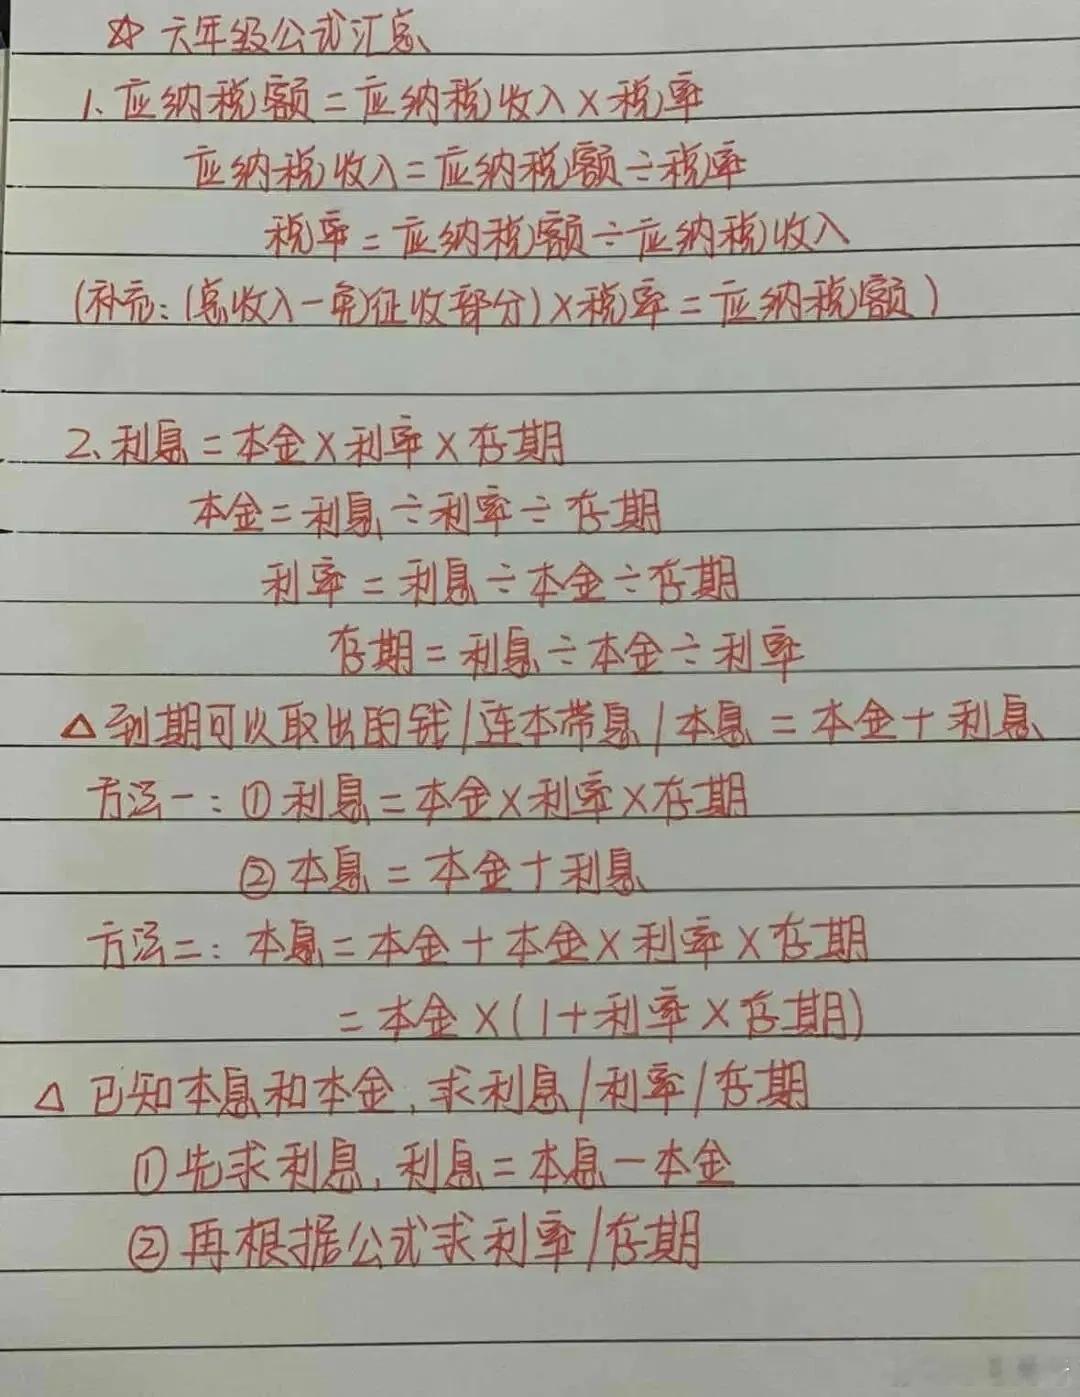 ☆ 六年级公式汇总
1、应纳税额=应纳税收入×税率
应纳税收入=应纳税额÷税率
税率=应纳税额÷应纳税收入
(补充:(总收入-免征收部分)×税率=应纳税额)
2、利息=本金×利率×存期
本金=利息÷利率÷存期
利率=利息÷本金÷存期
存期=利息÷本金÷利率
△到期可以取出的钱/连本带息/本息=本金+利息
方法一:①利息=本金×利率×存期
②本息=本金+利息
方法二:本息=本金+本金×利率×存期
=本金×(1+利率×存期)
△已知本息和本金,求利息/利率/存期
①先求利息,利息=本息-本金
②再根据公式求利率/存期